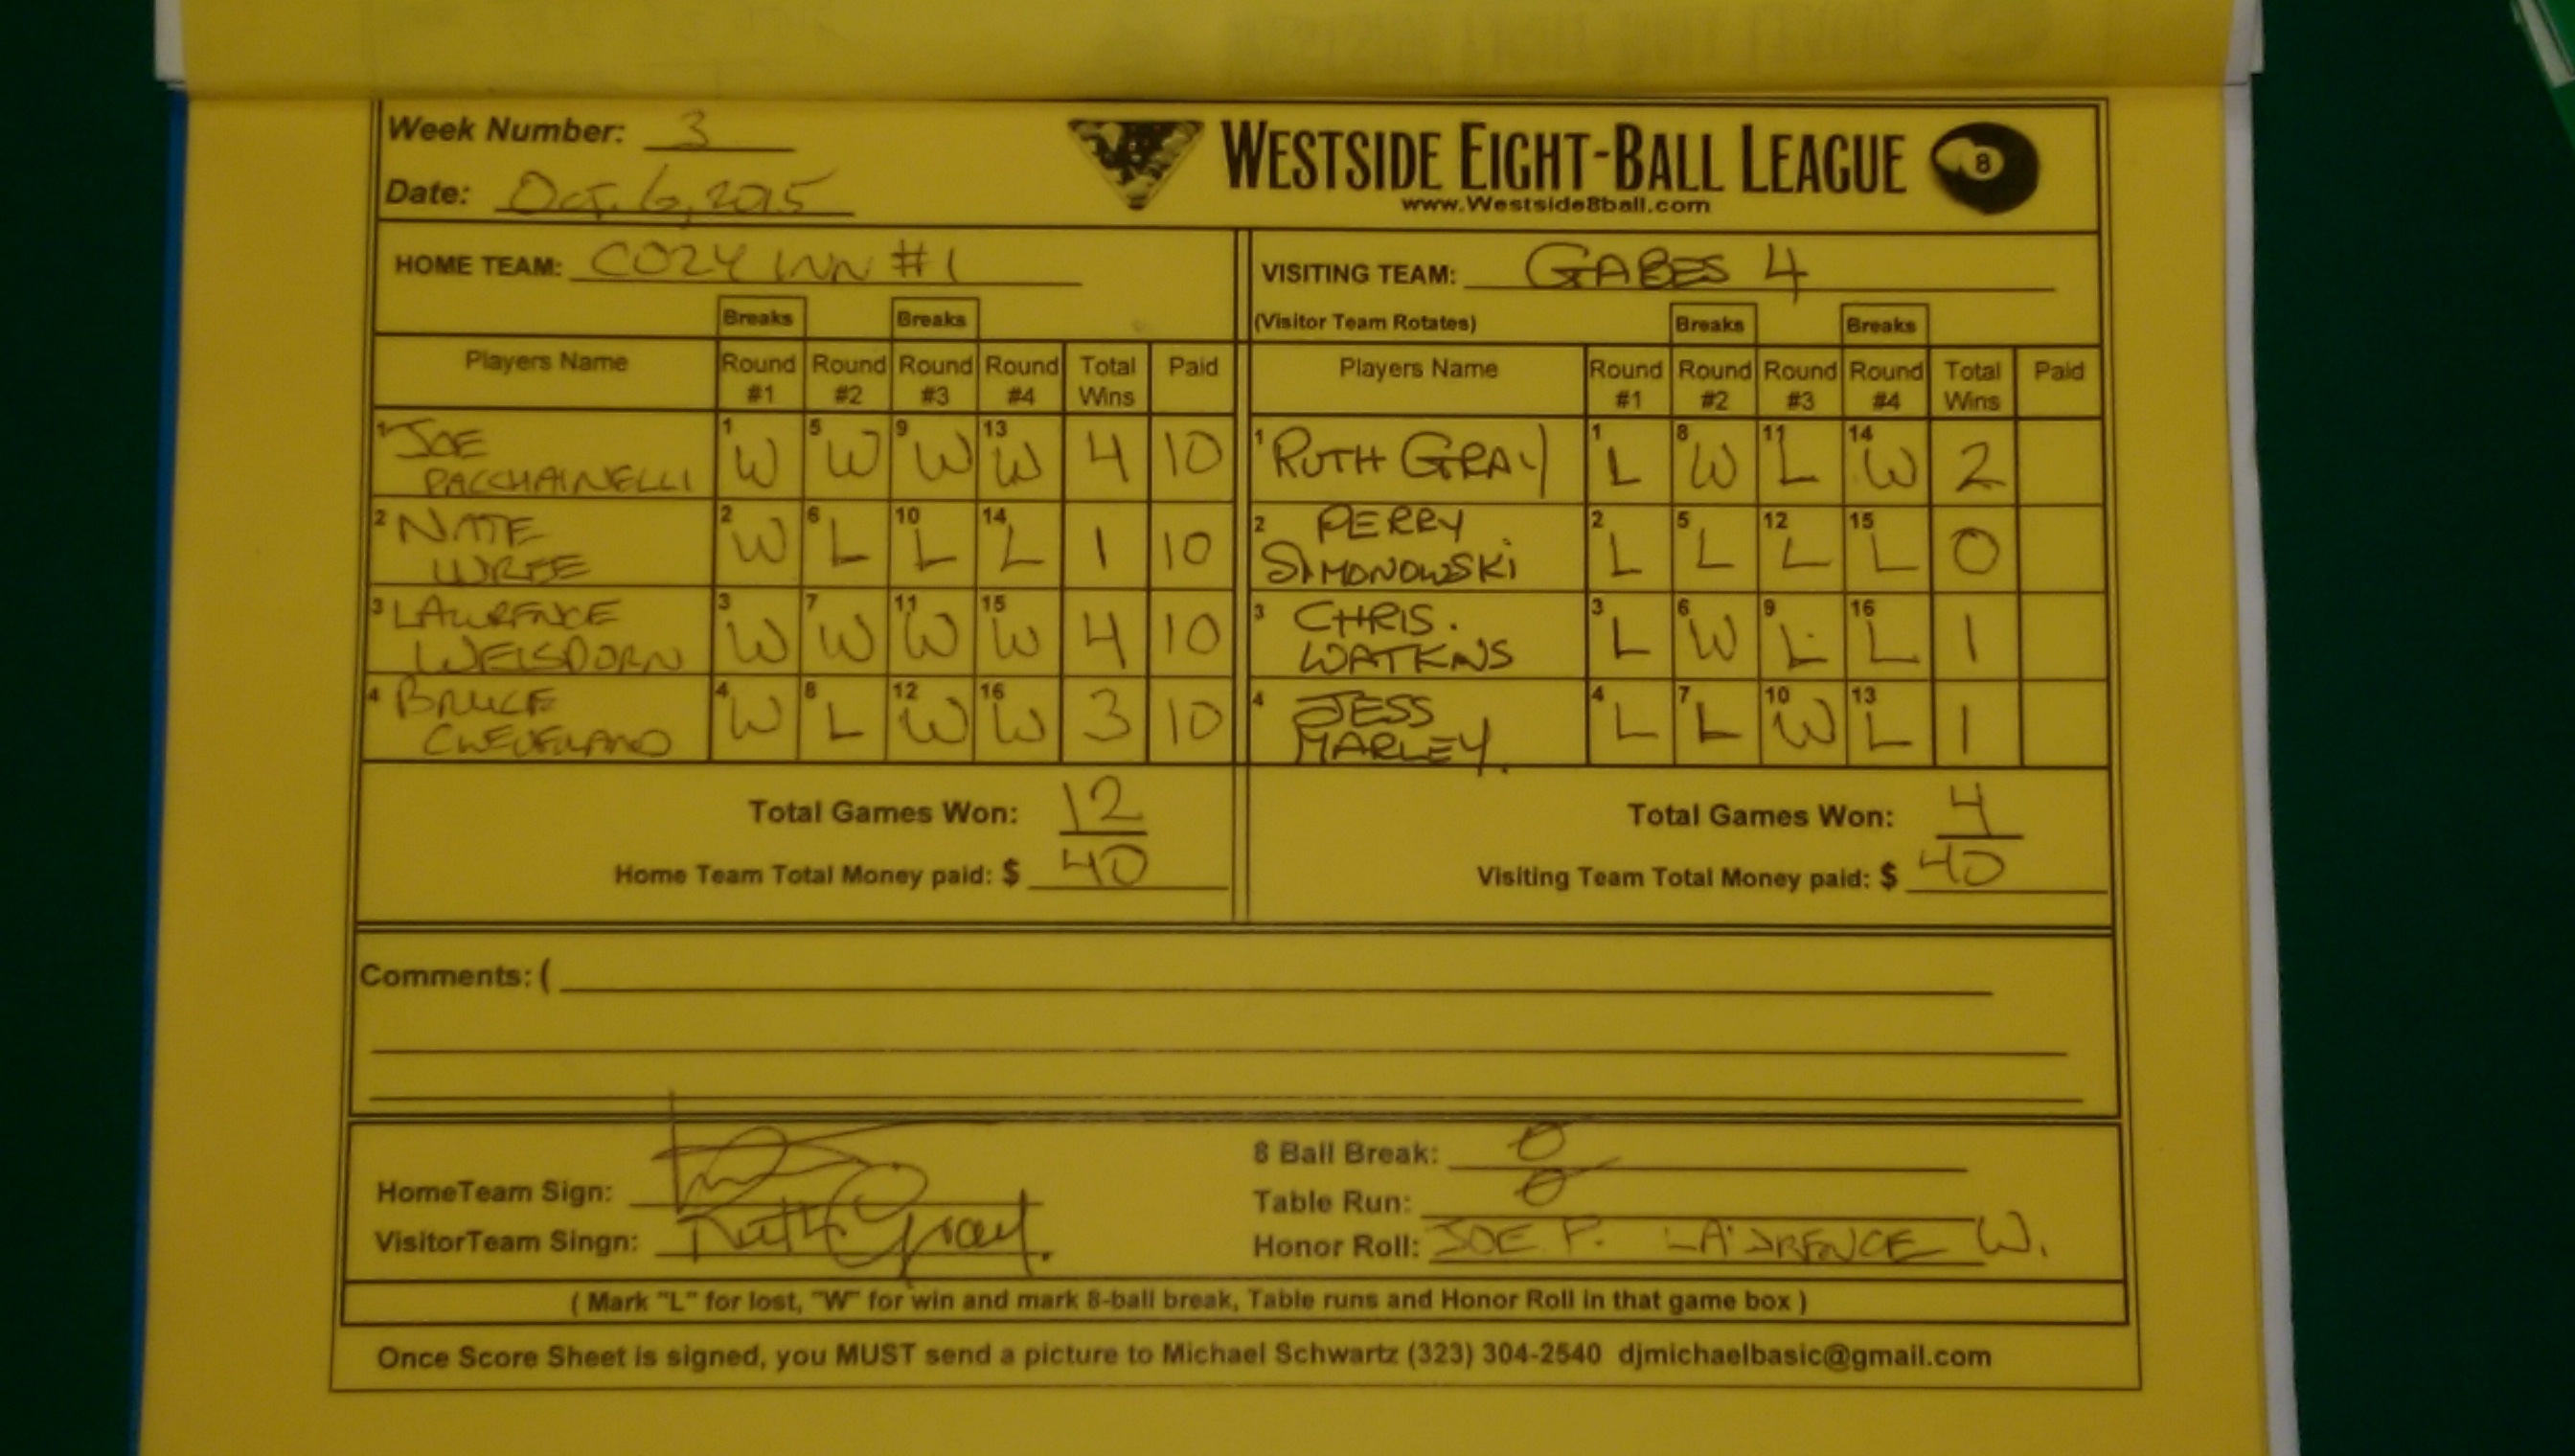 Week Number: 3
WESTSIDE EIGHT-BALL LEAGUE 8
Date: Oct. 6, 2015
www.Westside8ball.com
HOME TEAM: COZY INN #1
VISITING TEAM: GABES 4
Breaks Breaks
(Visitor Team Rotates) Breaks Breaks
Players Name Round #1 Round #2 Round #3 Round #4 Total Wins Paid
1 JOE PACCHAINELLI 1 W 5 W 9 W 13 W 4 10
2 NATE 2 W 6 L 10 L 14 L 1 10
3 LAWRENCE WEISDORN 3 W 7 W 11 W 15 W 4 10
4 BRUCE 4 W 8 L 12 W 16 W 3 10
Total Games Won: 12
Home Team Total Money paid: $ 40
Players Name Round #1 Round #2 Round #3 Round #4 Total Wins Paid
1 RUTH GRAY 1 L 8 W 11 L 14 W 2
2 PERRY SIMONOWSKI 2 L 5 L 12 L 15 L 0
3 CHRIS. WATKNS 3 L 6 W 9 L 16 L 1
4 JESS MARLEY. 4 L 7 L 10 W 13 L 1
Total Games Won: 4
Visiting Team Total Money paid: $ 40
Comments: (
HomeTeam Sign:
VisitorTeam Singn: Ruth Gray.
8 Ball Break: 0
Table Run: 0
Honor Roll: JOE P. LAWRENCE W.
( Mark "L" for lost, "W" for win and mark 8-ball break, Table runs and Honor Roll in that game box )
Once Score Sheet is signed, you MUST send a picture to Michael Schwartz (323) 304-2540 djmichaelbasic@gmail.com